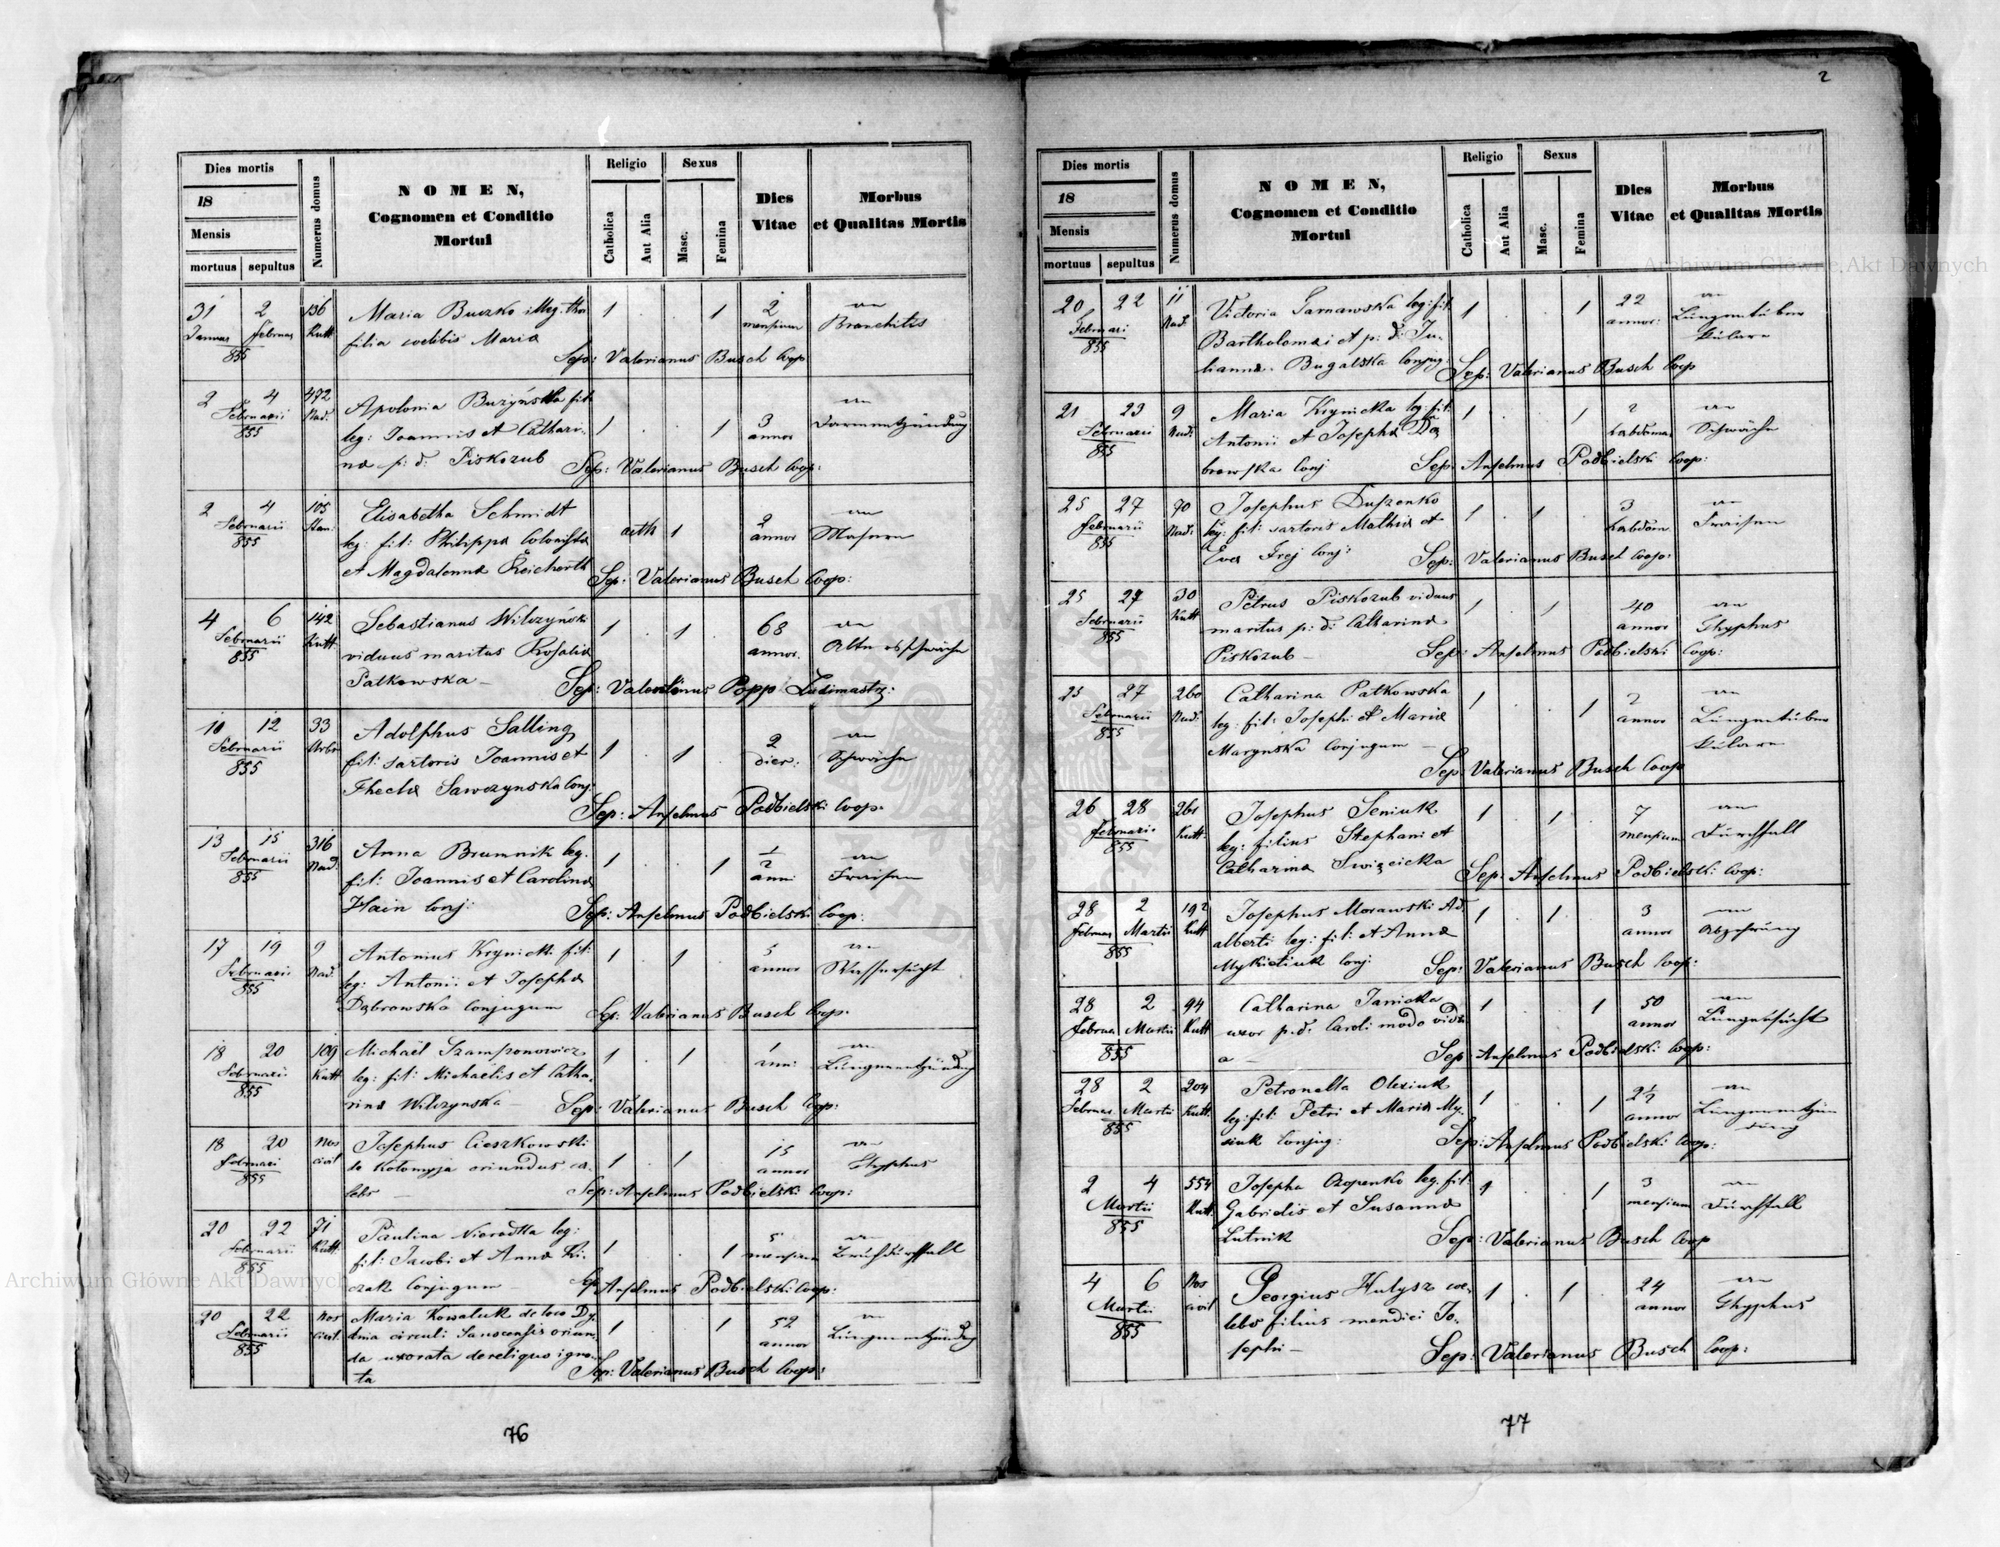 Dies mortis
18
Mensis
mortuus sepultus
Numerus domus
NOMEN,
Cognomen et Conditio
Mortui
Religio
Catholica
Aut Alia
Sexus
Masc.
Femina
Dies
Vitae
Morbus
et Qualitas Mortis
31 2 136 Maria Buczko 1 1 2
Februar Kutt filia coelibis Maria mensium Bronchitis
855 Sep: Valerianus Busch Coop
2 4 472 Apolonia Buzyńska fil:
Februarii Nad. leg: Joannis et Cathari- 1 1 3 Darmentzündung
855 na p: d: Piskozub annor
Sep: Valerianus Busch Coop:
2 4 105 Elisabetha Schmidt
Februarii leg: fil: Philippa Colonista 1 2 Masern
855 et Magdalenna Reicherth annor
Sep: Valerianus Busch Coop:
4 6 142 Sebastianus Wilczyński 1 1 68
Februarii Kutt. viduus maritus Rosalia annor. Altersschwäche
855 Patkowska –
Sep: Popp
10 12 33 Adolphus Salling
Februarii fil: sartoris Joannis et 1 1 2 Schwäche
855 Thecla Sawczynska Conj: dier:
Sep: Anselmus Podbielski Coop:
13 15 316 Anna Brumnik leg. 1 1 1/2
Februarii Nad fil: Joannis et Carolina anni Fraisen
855 Hain Conj:
Sep: Anselmus Podbielski Coop:
17 19 9 Antonius Krynicki fil: 1 1 5
Februarii Nad. leg: Antonii et Josepha annor Wassersucht
855 Dąbrowska Conjugum
Sep: Valerianus Busch Coop.
18 20 109 Michaël Szamponowicz 1 1 1
Februarii Kutt leg: fil: Michaelis et Catha- anni Lungenentzündung
855 rina Wilczynska –
Sep: Valerianus Busch Coop:
18 20 Nos Josephus Cieszkowski
Februarii civil de Kołomyja oriundus cœ- 1 1 15 Thyphus
855 lebs – annor
Sep: Anselmus Podbielski Coop:
20 22 71 Paulina Nieradka leg: 5
Februarii Kutt. fil: Jacobi et Anna Ki- 1 1 mensium
855 czak Conjugum –
Sep Anselmus Podbielski Coop:
20 22 Nos Maria Kowaluk de loco Dy-
Februarii Civil. circuli Sanocensis oriun- 1 1 52 Lungenentzündung
855 da uxorata de reliquo igno- annor
ta
Sep: Valerianus Busch Coop:
76
2
Dies mortis
18
Mensis
mortuus sepultus
Numerus domus
NOMEN,
Cognomen et Conditio
Mortui
Religio
Catholica
Aut Alia
Sexus
Masc.
Femina
Dies
Vitae
Morbus
et Qualitas Mortis
20 22 11 Victoria Garnawska leg: fil. 1 1 22
Februari Nad. Bartholomæi et p: d: Ju- annor:
855 lianna Bugalska Conjug:
Sep: Valerianus Busch Coop
21 23 9 Maria Krynicka leg: fil. 1 1 2
Februarii Nad: Antonii et Josepha Dą hebdoma. Schwäche
855 browska Conj
Sep: Anselmus Podbielski Coop:
25 27 70 Josephus Duszenko 1 1 3
Februarii Nad: leg: fil: sartoris Mathia et hebdom. Fraisen
855 Eva Frej Conj:
Sep: Valerianus Busch Coop:
25 27 30 Petrus Piskozub viduus 1 1 40
Februarii Kutt maritus p: d: Catharina annor Thyphus
855 Piskozub –
Sep: Anselmus Podbielski Coop:
25 27 260 Catharina Patkowska 1 1 2
Februarii Nad: leg: fil: Josephi et Maria annor
855 Marynska Conjugum –
Sep: Valerianus Busch Coop
26 28 261 Josephus Seniuk 1 1 7
Februarii Kutt. leg: filius Stephani et mensium Durchfall
855 Catharina Swięcicka
Sep: Anselmus Podbielski Coop:
28 2 192 Josephus Morawski Ad. 1 1 3
Februar Martii Kutt alberti leg: fil: et Anna annor Abzehrung
855 Mykietiuk Conj
Sep: Valerianus Busch Coop:
28 2 94 Catharina Janicka 1 1 50
Februa. Martii Kutt uxor p. d. Caroli modo vidu annor Lungensucht
855 a –
Sep: Anselmus Podbielski Coop:
28 2 204 Petronella Olexiuk 1 1 2 1/2
Februar Martii Kutt. leg: fil: Petri et Maria My- annor Lungenentzün
855 siuk Conjug: dung
Sep: Anselmus Podbielski Coop:
2 4 554 Josepha Czopenko leg. fil: 1 1 3
Martii Kutt. Gabrielis et Susanna mensium Durchfall
855 Lutnik
Sep: Valerianus Busch Coop
4 6 Nos Georgius Hulysz cœ- 1 1 24
Martii civil lebs filius mendici Jo- annor Thyphus
855 sephi –
Sep: Valerianus Busch Coop:
77
Archiwum Główne Akt Dawnych
Archiwum Główne Akt Dawnych